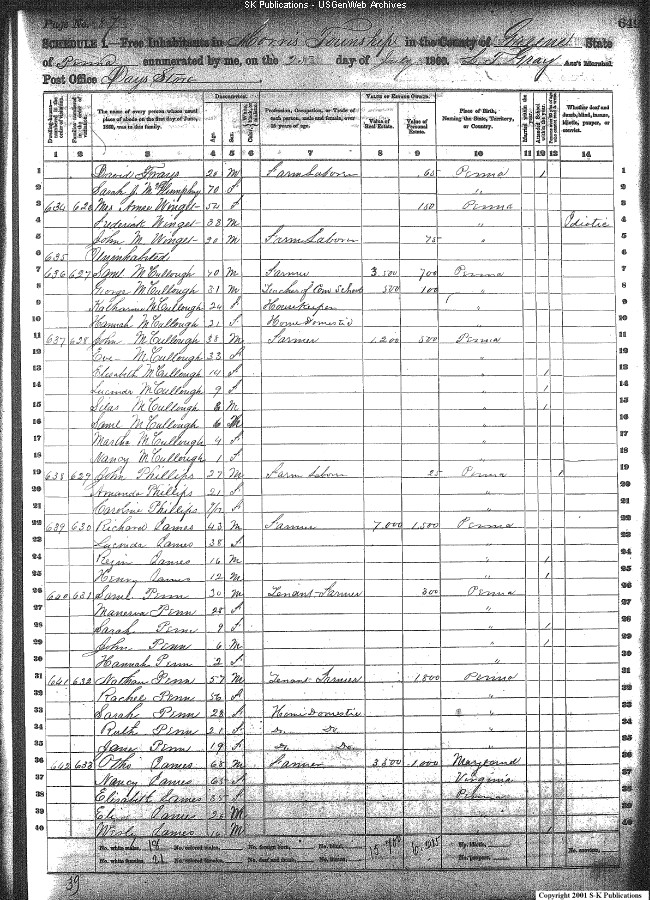 SK Publications - USGenWeb Archives
Page No.
SCHEDULE 1.—Free Inhabitants in Morris Township in the County of Greene State
of Penna enumerated by me, on the day of July 1860. Gray Ass't Marshal.
Post Office Days Store
DESCRIPTION. VALUE OF ESTATE OWNED.
The name of every person whose usual place of abode on the first day of June, 1860, was in this family.
Age. Sex.
Profession, Occupation, or Trade of each person, male and female, over 15 years of age.
Value of Real Estate. Value of Personal Estate.
Place of Birth, Naming the State, Territory, or Country.
Married within the year. Attended School within the year.
Whether deaf and dumb, blind, insane, idiotic, pauper, or convict.
1 2 3 4 5 6 7 8 9 10 11 12 13 14
1 David 20 M Farm Laborer 65 Penna 1 1
2 Sarah J. 70 f " 2
3 634 626 Mrs Winget 54 f 150 Penna 3
4 Frederick Winget 38 M " Idiotic 4
5 John M. Winget 20 M Farm Laborer 75 " 5
6 635 Uninhabited 6
7 636 627 Saml McCullough 70 M Farmer 3,500 700 Penna 7
8 George McCullough 31 M Teacher of Com School 500 100 " 8
9 Katharine McCullough 24 f Housekeeper " 9
10 Hannah McCullough 21 f Home Domestic " 10
11 637 628 John McCullough 38 M Farmer 1,200 500 Penna 11
12 Eve McCullough 33 f " 12
13 Elizabeth McCullough 14 f " 1 13
14 Lucinda McCullough 9 f " 1 14
15 Silas McCullough 8 M " 1 15
16 Saml McCullough 6 M 16
17 Martha McCullough 4 f " 17
18 Nancy McCullough 1 f " 18
19 638 629 John Phillips 27 M Farm Labor 25 Penna 1 19
20 Amanda Phillips 21 f " 20
21 Caroline Phillips f " 22
22 639 630 Richard James 43 M Farmer 7,000 1,500 Penna 22
23 Lucinda James 38 f 23
24 James 16 M " 1 24
25 Henry James 12 M " 1 25
26 640 631 Saml Penn 30 M Tenant Farmer 300 Penna 26
27 Manerva Penn 28 f " 27
28 Sarah Penn 9 f " 1 28
29 John Penn 6 M " 1 29
30 Hannah Penn 2 f " 30
31 641 632 Nathan Penn 57 M Tenant Farmer 1,800 Penna 31
32 Rachel Penn 56 f " 32
33 Sarah Penn 28 f Home Domestic " 33
34 Ruth Penn 21 f Do Do " 34
35 Jane Penn 19 f Do Do " 35
36 642 633 Otho James 68 M Farmer 3,500 1,000 Maryland 36
37 Nancy James 65 f Virginia 37
38 Elizabeth James f Penna 38
39 James M 39
40 Wesly James M 1 40
No. white males, 19 No. colored males, No. foreign born, No. blind, No. idiotic, No. convict,
No. white females, 21 No. colored females, No. deaf and dumb, No. insane, No. paupers,
39
Copyright 2001 S-K Publications